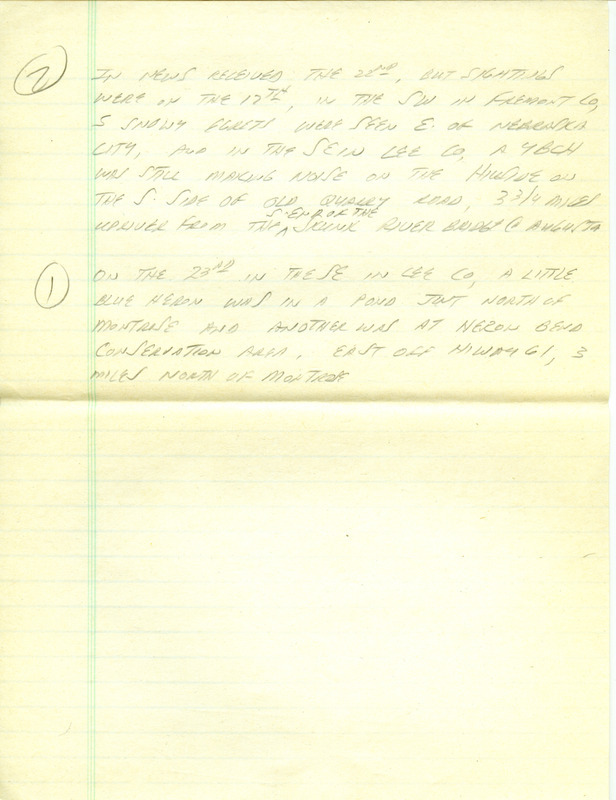 ② IN NEWS RECEIVED THE 22ND, BUT SIGHTINGS
WERE ON THE 17TH, IN THE SW IN FREMONT CO,
5 SNOWY EGRETS WERE SEEN E. OF NEBRASKA
CITY, AND IN THE SE IN LEE CO, A YBCH
WAS STILL MAKING NOISE ON THE HILLSIDE ON
THE S. SIDE OF OLD QUARRY ROAD, 3 3/4 MILES
UPRIVER FROM THE S. END OF THE SKUNK RIVER BRIDGE @ AUGUSTA
① ON THE 23RD IN THE SE IN LEE CO, A LITTLE
BLUE HERON WAS IN A POND JUST NORTH OF
MONTROSE AND ANOTHER WAS AT HERON BEND
CONSERVATION AREA, EAST OFF HIWAY 61, 3
MILES NORTH OF MONTROSE